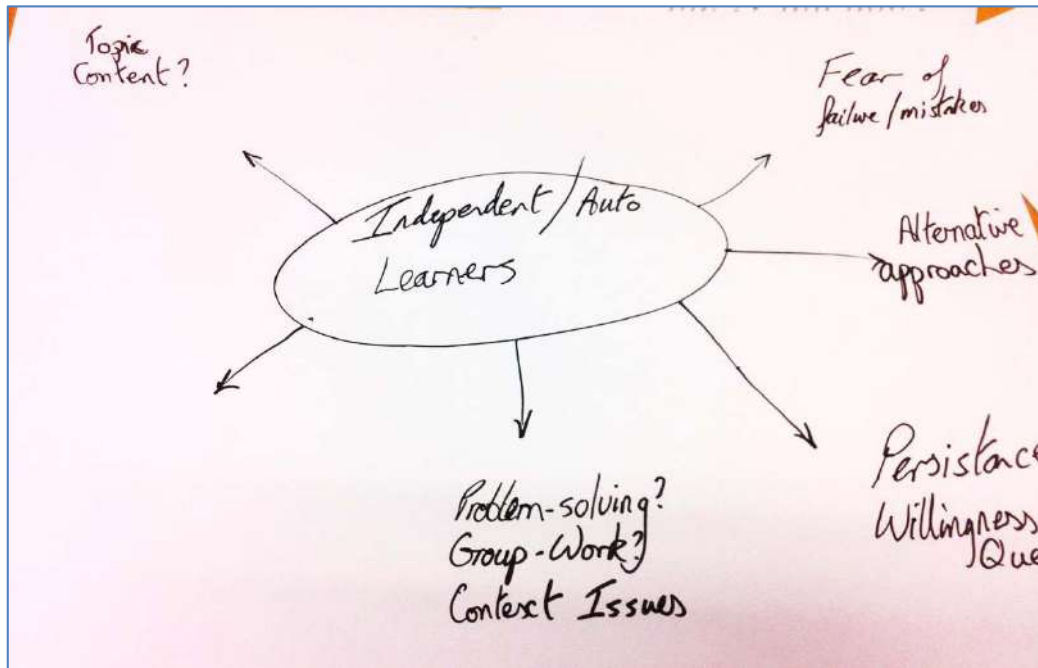 Topic
Content?
Fear of
failure/mistakes
Independent/Auto
Learners
Alternative
approaches
Problem-solving?
Group-Work?
Context Issues
Persistance
Willingness
Que